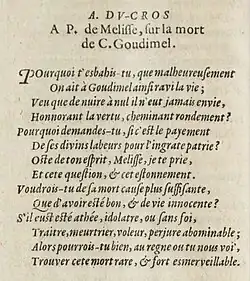 A. DV-CROS
A P. de Meliſſe, ſur la mort
de C. Goudimel.
POurquoi t'esbahis-tu, que malheureuſement
On ait à Goudimel ainſi ravi la vie;
Veu que de nuire à nul il n'eut jamais envie,
Honnorant la vertu, cheminant rondement?
Pourquoi demandes-tu, ſi c'eſt le payement
De ſes divins labeurs pour l'ingrate patrie?
Oſte de ton eſprit, Meliſſe, je te prie,
Et cete queſtion, & cet eſtonnement.
Voudrois-tu de ſa mort cauſe plus ſuffiſante,
Que d'avoir eſté bon, & de vie innocente?
S'il euſt eſté athée, idolatre, ou ſans foi,
Traitre, meurtrier, voleur, perjure abominable;
Alors pourrois-tu bien, au regne ou tu nous voi,
Trouver cete mort rare, & fort esmerveillable.